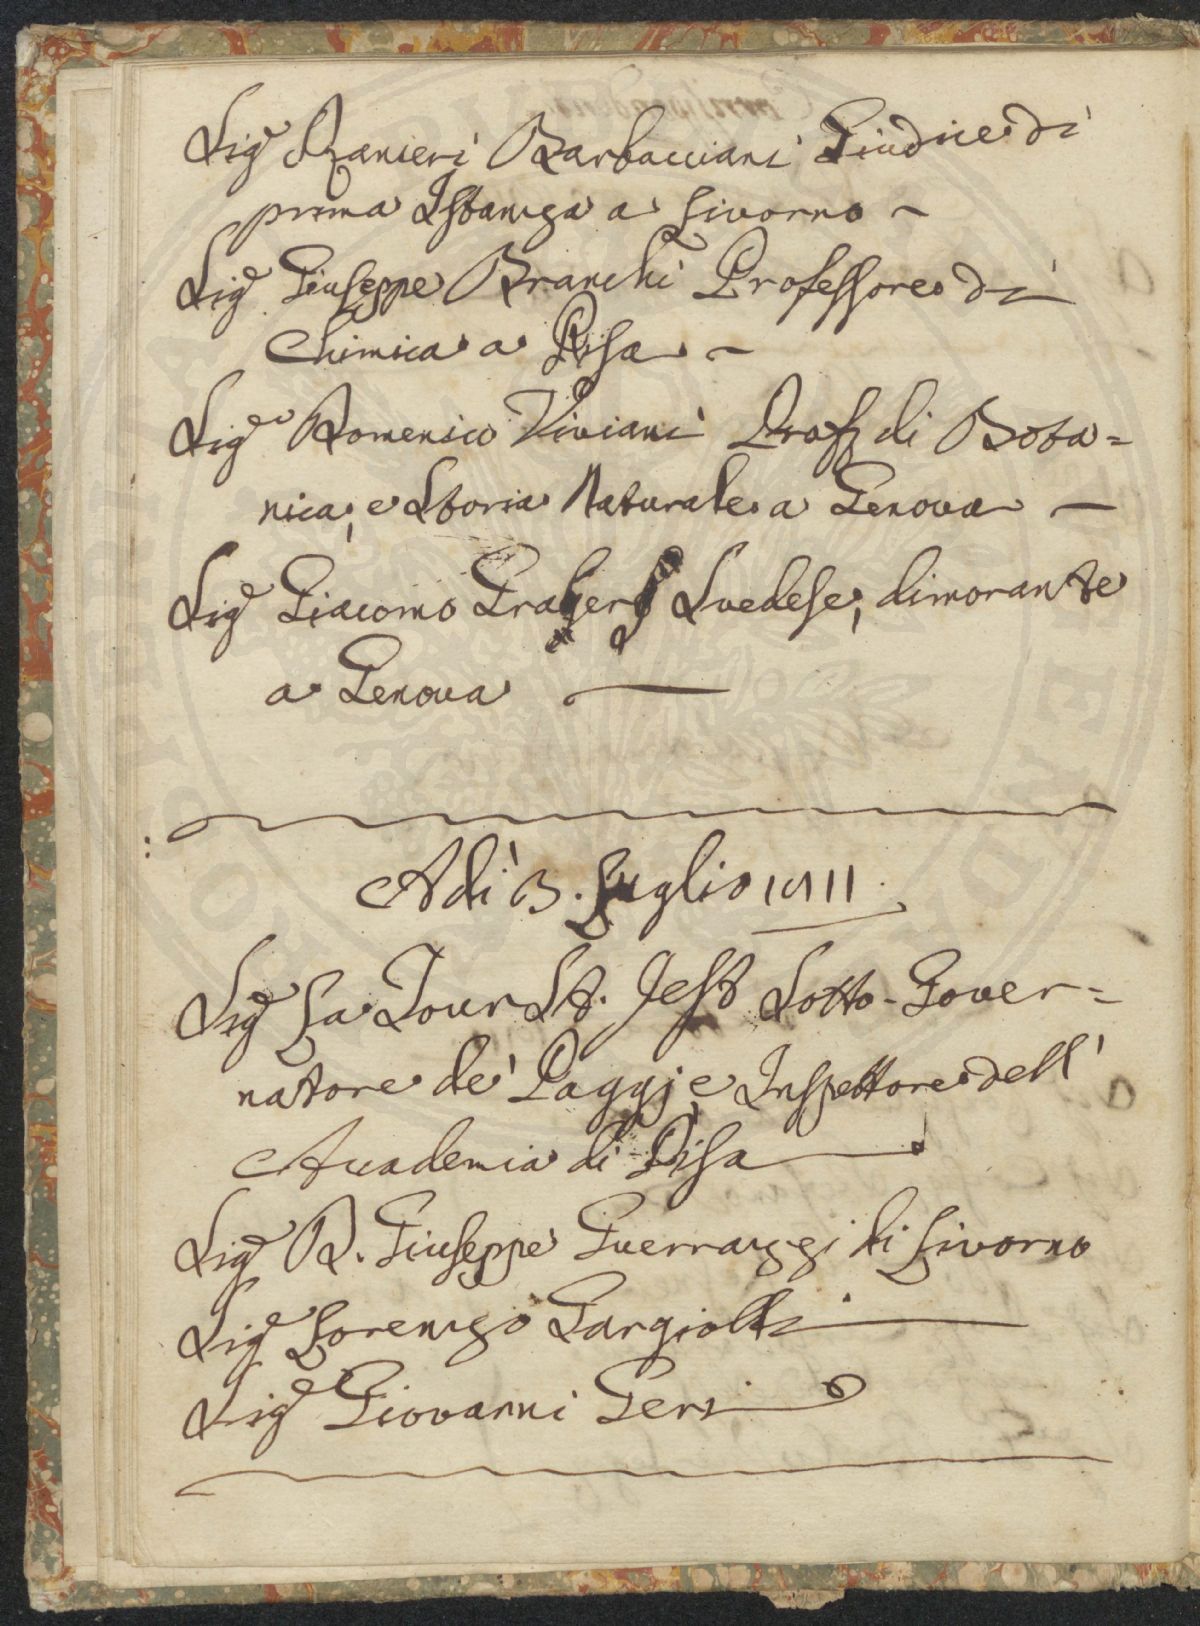 Sig.r Ranieri Barbacciani Giudice di
prima Istanza a Livorno ~
Sig.r Giuseppe Branchi Professore di
Chimica a Pisa. ~
Sig.r Domenico Viviani Prof. di Bota=
nica; e Storia Naturale a Genova —
Sig.r Giacomo Graberg Svedese, dimorante
a Genova —
Adì 3. Luglio 1811.
Sig.r La Tour St. Jest Sotto-Gover=
natore de' Paggj e Inspettore dell'
Accademia di Pisa
Sig.r D. Giuseppe Guerrazzi di Livorno
Sig.r Lorenzo Gargiolli
Sig.r Giovanni Geri